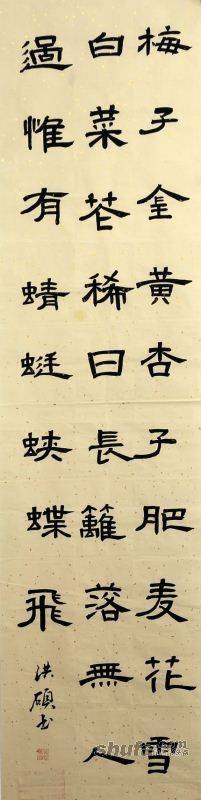 梅子金黄杏子肥麦花雪
白菜花稀日長籬落無人
過惟有蜻蜓蛱蝶飛
洪碩书